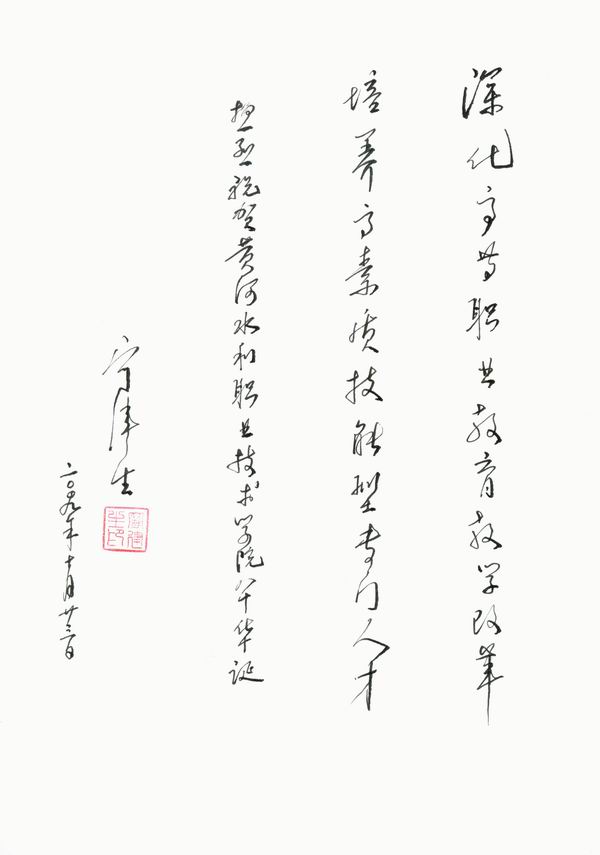 深化高等职业教育教学改革
培养高素质技能型专门人才
热烈祝贺黄河水利职业技术学院八十华诞
宁津生
二〇〇九年十月廿三日